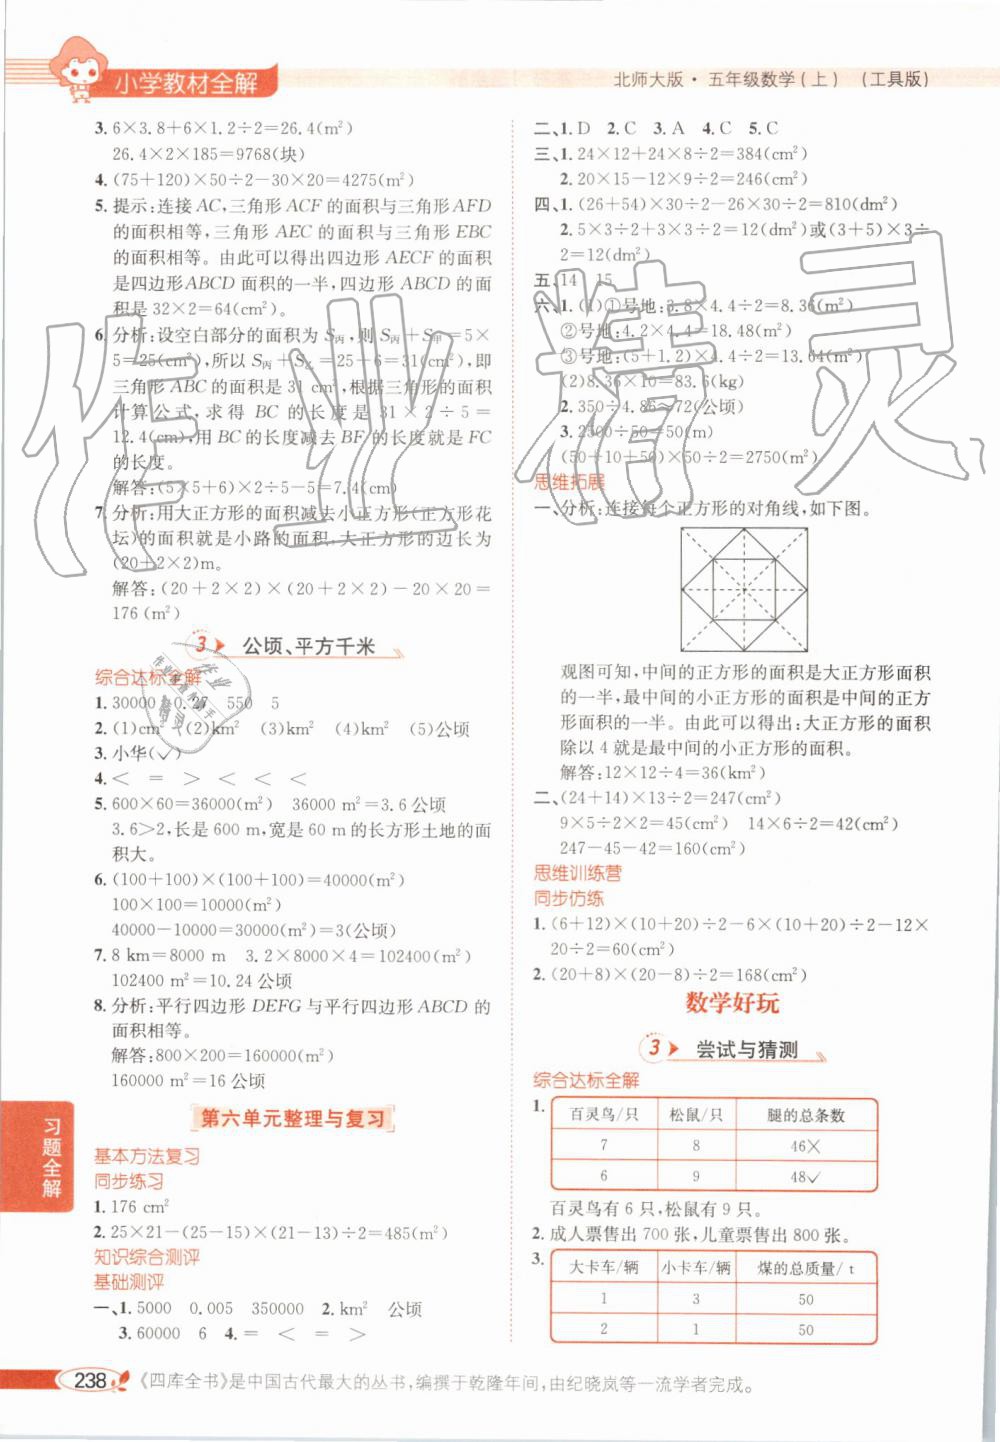 小学教材全解
北师大版·五年级数学(上) (工具版)
3. 6×3.8+6×1.2÷2=26.4(m²)
26.4×2×185=9768(块)
4. (75+120)×50÷2-30×20=4275(m²)
5. 提示:连接AC,三角形ACF的面积与三角形AFD
的面积相等,三角形AEC的面积与三角形EBC
的面积相等。由此可以得出四边形AECF的面积
是四边形ABCD面积的一半,四边形ABCD的面
积是32×2=64(cm²)。
6. 分析:设空白部分的面积为S丙,则S丙+S甲=5×
5=25(cm²),所以S丙+S乙=25+6=31(cm²),即
三角形ABC的面积是31 cm²,根据三角形的面积
计算公式,求得BC的长度是31×2÷5=
12.4(cm),用BC的长度减去BF的长度就是FC
的长度。
解答:(5×5+6)×2÷5-5=7.4(cm)
7. 分析:用大正方形的面积减去小正方形(正方形花
坛)的面积就是小路的面积,大正方形的边长为
(20+2×2)m。
解答:(20+2×2)×(20+2×2)-20×20=
176(m²)
3 公顷、平方千米
综合达标全解
1. 30000 0.27 550 5
2. (1)cm² (2)km² (3)km² (4)km² (5)公顷
3. 小华(✓)
4. < = > < < <
5. 600×60=36000(m²) 36000 m²=3.6公顷
3.6>2,长是600 m,宽是60 m的长方形土地的面
积大。
6. (100+100)×(100+100)=40000(m²)
100×100=10000(m²)
40000-10000=30000(m²)=3(公顷)
7. 8 km=8000 m 3.2×8000×4=102400(m²)
102400 m²=10.24公顷
8. 分析:平行四边形DEFG与平行四边形ABCD的
面积相等。
解答:800×200=160000(m²)
160000 m²=16公顷
第六单元整理与复习
基本方法复习
同步练习
1. 176 cm²
2. 25×21-(25-15)×(21-13)÷2=485(m²)
知识综合测评
基础测评
一、1. 5000 0.005 350000 2. km² 公顷
3. 60000 6 4. = < = >
二、1. D 2. C 3. A 4. C 5. C
三、1. 24×12+24×8÷2=384(cm²)
2. 20×15-12×9÷2=246(cm²)
四、1. (26+54)×30÷2-26×30÷2=810(dm²)
2. 5×3÷2+3×3÷2=12(dm²)或(3+5)×3÷
2=12(dm²)
五、14 15
六、1. (1)①号地:3.8×4.4÷2=8.36(m²)
②号地:4.2×4.4=18.48(m²)
③号地:(5+1.2)×4.4÷2=13.64(m²)
(2)8.36×10=83.6(kg)
2. 350÷4.86≈72(公顷)
3. 2500÷50=50(m)
(50+10+50)×50÷2=2750(m²)
思维拓展
一、分析:连接每个正方形的对角线,如下图。
观图可知,中间的正方形的面积是大正方形面积
的一半,最中间的小正方形的面积是中间的正方
形面积的一半。由此可以得出:大正方形的面积
除以4就是最中间的小正方形的面积。
解答:12×12÷4=36(km²)
二、(24+14)×13÷2=247(cm²)
9×5÷2×2=45(cm²) 14×6÷2=42(cm²)
247-45-42=160(cm²)
思维训练营
同步仿练
1. (6+12)×(10+20)÷2-6×(10+20)÷2-12×
20÷2=60(cm²)
2. (20+8)×(20-8)÷2=168(cm²)
数学好玩
3 尝试与猜测
综合达标全解
1. 百灵鸟/只 松鼠/只 腿的总条数
7 8 46×
6 9 48✓
百灵鸟有6只,松鼠有9只。
2. 成人票售出700张,儿童票售出800张。
3. 大卡车/辆 小卡车/辆 煤的总质量/t
1 3 50
2 1 50
习题全解
238 《四库全书》是中国古代最大的丛书,编撰于乾隆年间,由纪晓岚等一流学者完成。
作业精灵